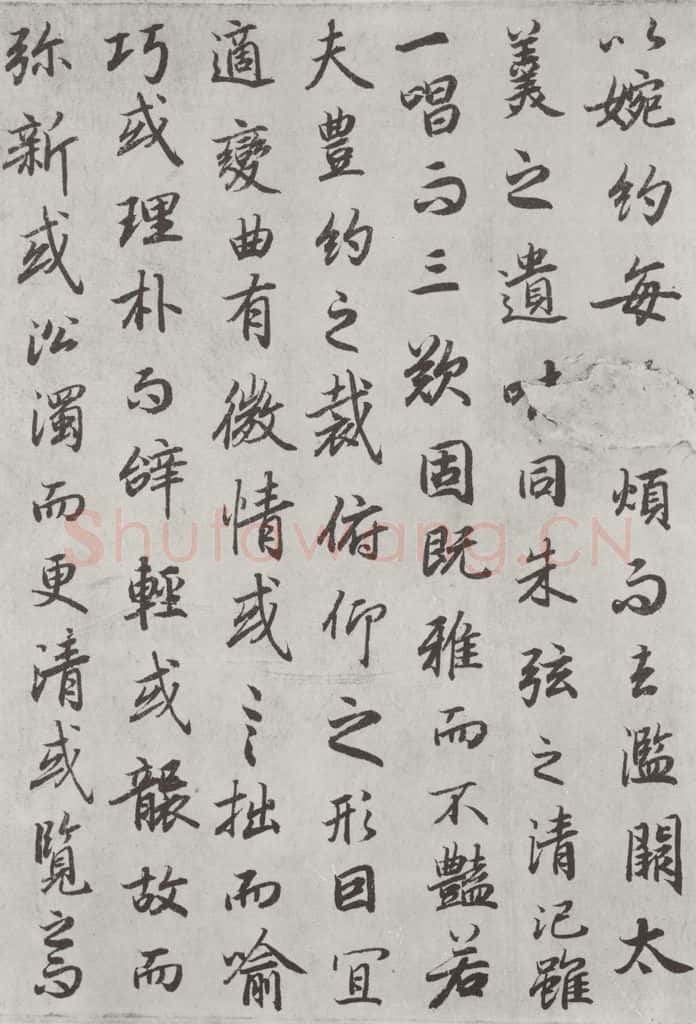 以婉約每煩而去濫闕太
羹之遺同朱弦之清汜雖
一唱而三歎固既雅而不豔若
夫豐約之裁俯仰之形因宜
適變曲有微情或言拙而喻
巧或理朴而辭輕或襲故而
弥新或沿濁而更清或覽之而
Shufawang.CN